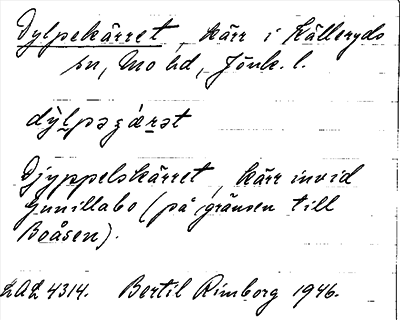 Dylpekärret, kärr i Kålleryds
sn, Mo hd, Jönk. l.
dy̆lpəʒæ̀rət
Djyppelskärret, kärr invid
Gunillabo (på gränsen till
Boåsen).
LAL 4314. Bertil Rimborg 1946.